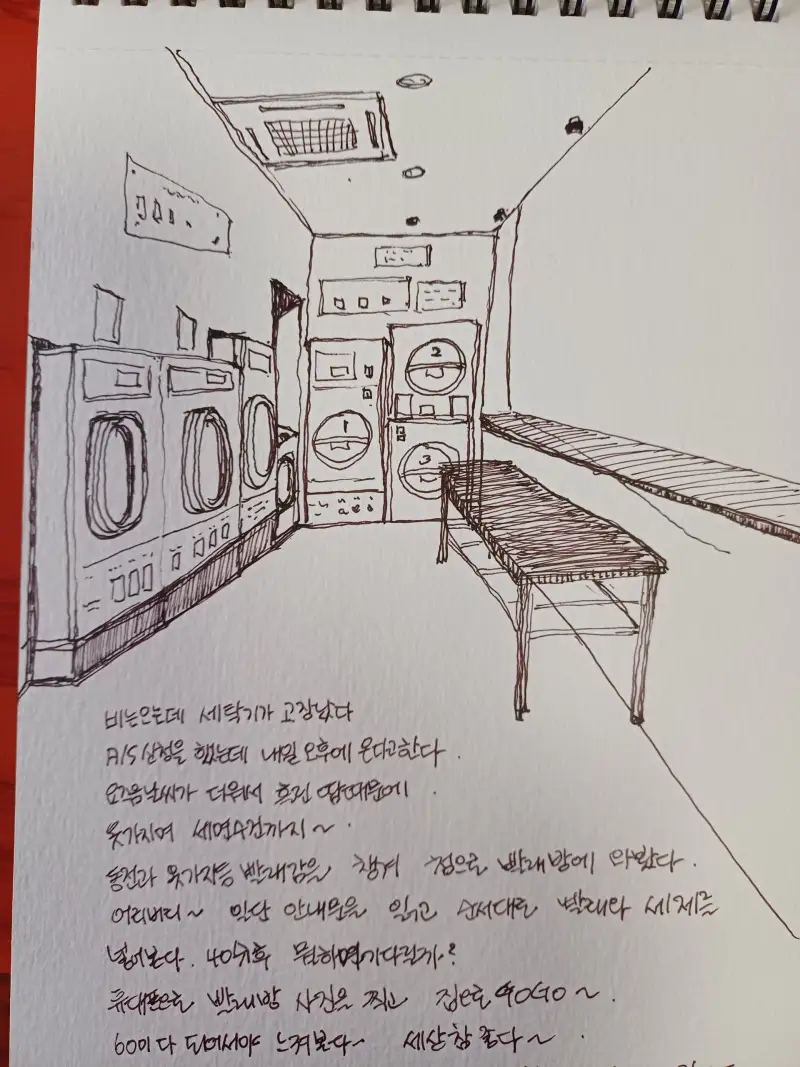 2
1
3
비는오는데 세탁기가 고장났다
A/S 신청을 했는데 내일 오후에 온다고한다.
요즘날씨가 더워서 흐린 땀때문에
옷가지며 세면수건까지~
동전과 옷가지등 빨래감을 챙겨 빨래방에 와봤다.
어리버리~ 일단 안내문을 읽고 순서대로 빨래와 세제를
넣어본다. 40분후 뭘하며기다릴까?
휴대폰으로 빨래방 사진을 찍고 집으로 GOGO~.
60이 다 되어서야 느껴본다~ 세상참 좋다~.